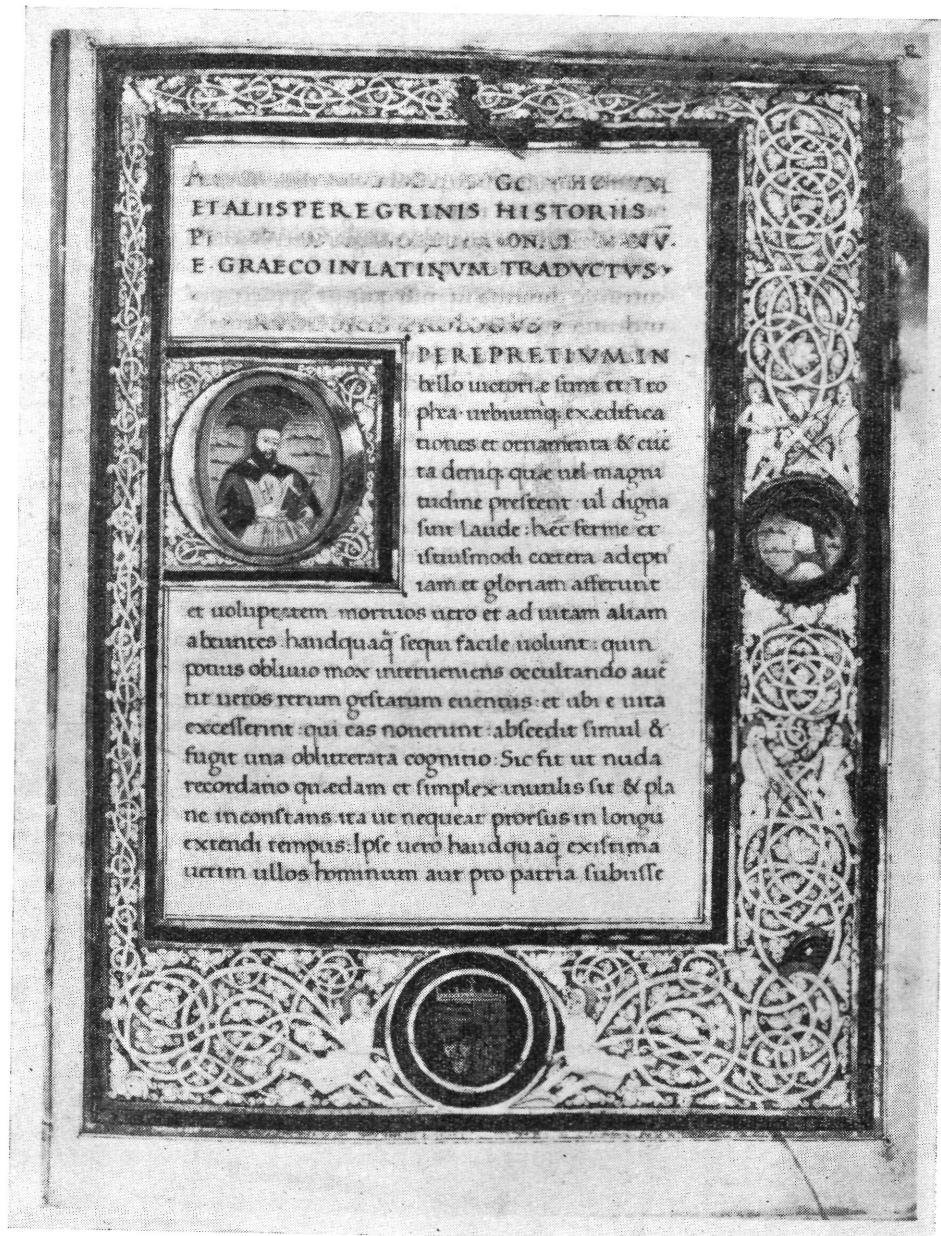 ET ALIIS PEREGRINIS HISTORIIS
E · GRAECO IN LATINVM TRADVCTVS
PROLOGVS
PEREPRETIVM · IN
bello uictoriæ sunt et
phea · urbiumq; ex ædifica
tiones et ornamenta & cūc
ta deniq; quæ uel magni
tudine prestent · ul̄ digna
sint laude : hec ferme et
istiusmodi cœtera adepti
iam et gloriam afferunt
et uoluptatem mortuos uero et ad uitam aliam
abeuntes haudquaq̄ sequi facile uolunt : quin
potius obliuio mox interueniens occultando aue
tit ueros rerum gestarum euentus : et ubi e uita
excesserint qui eas nouerunt : abscedit simul &
fugit una obliterata cognitio : Sic fit ut nuda
recordatio quædam et simplex inutilis sit & pla
ne inconstans ita ut nequeat prorsus in longū
extendi tempus : Ipse uero haudquaq̄ existima
uerim ullos hominum aut pro patria subiisse